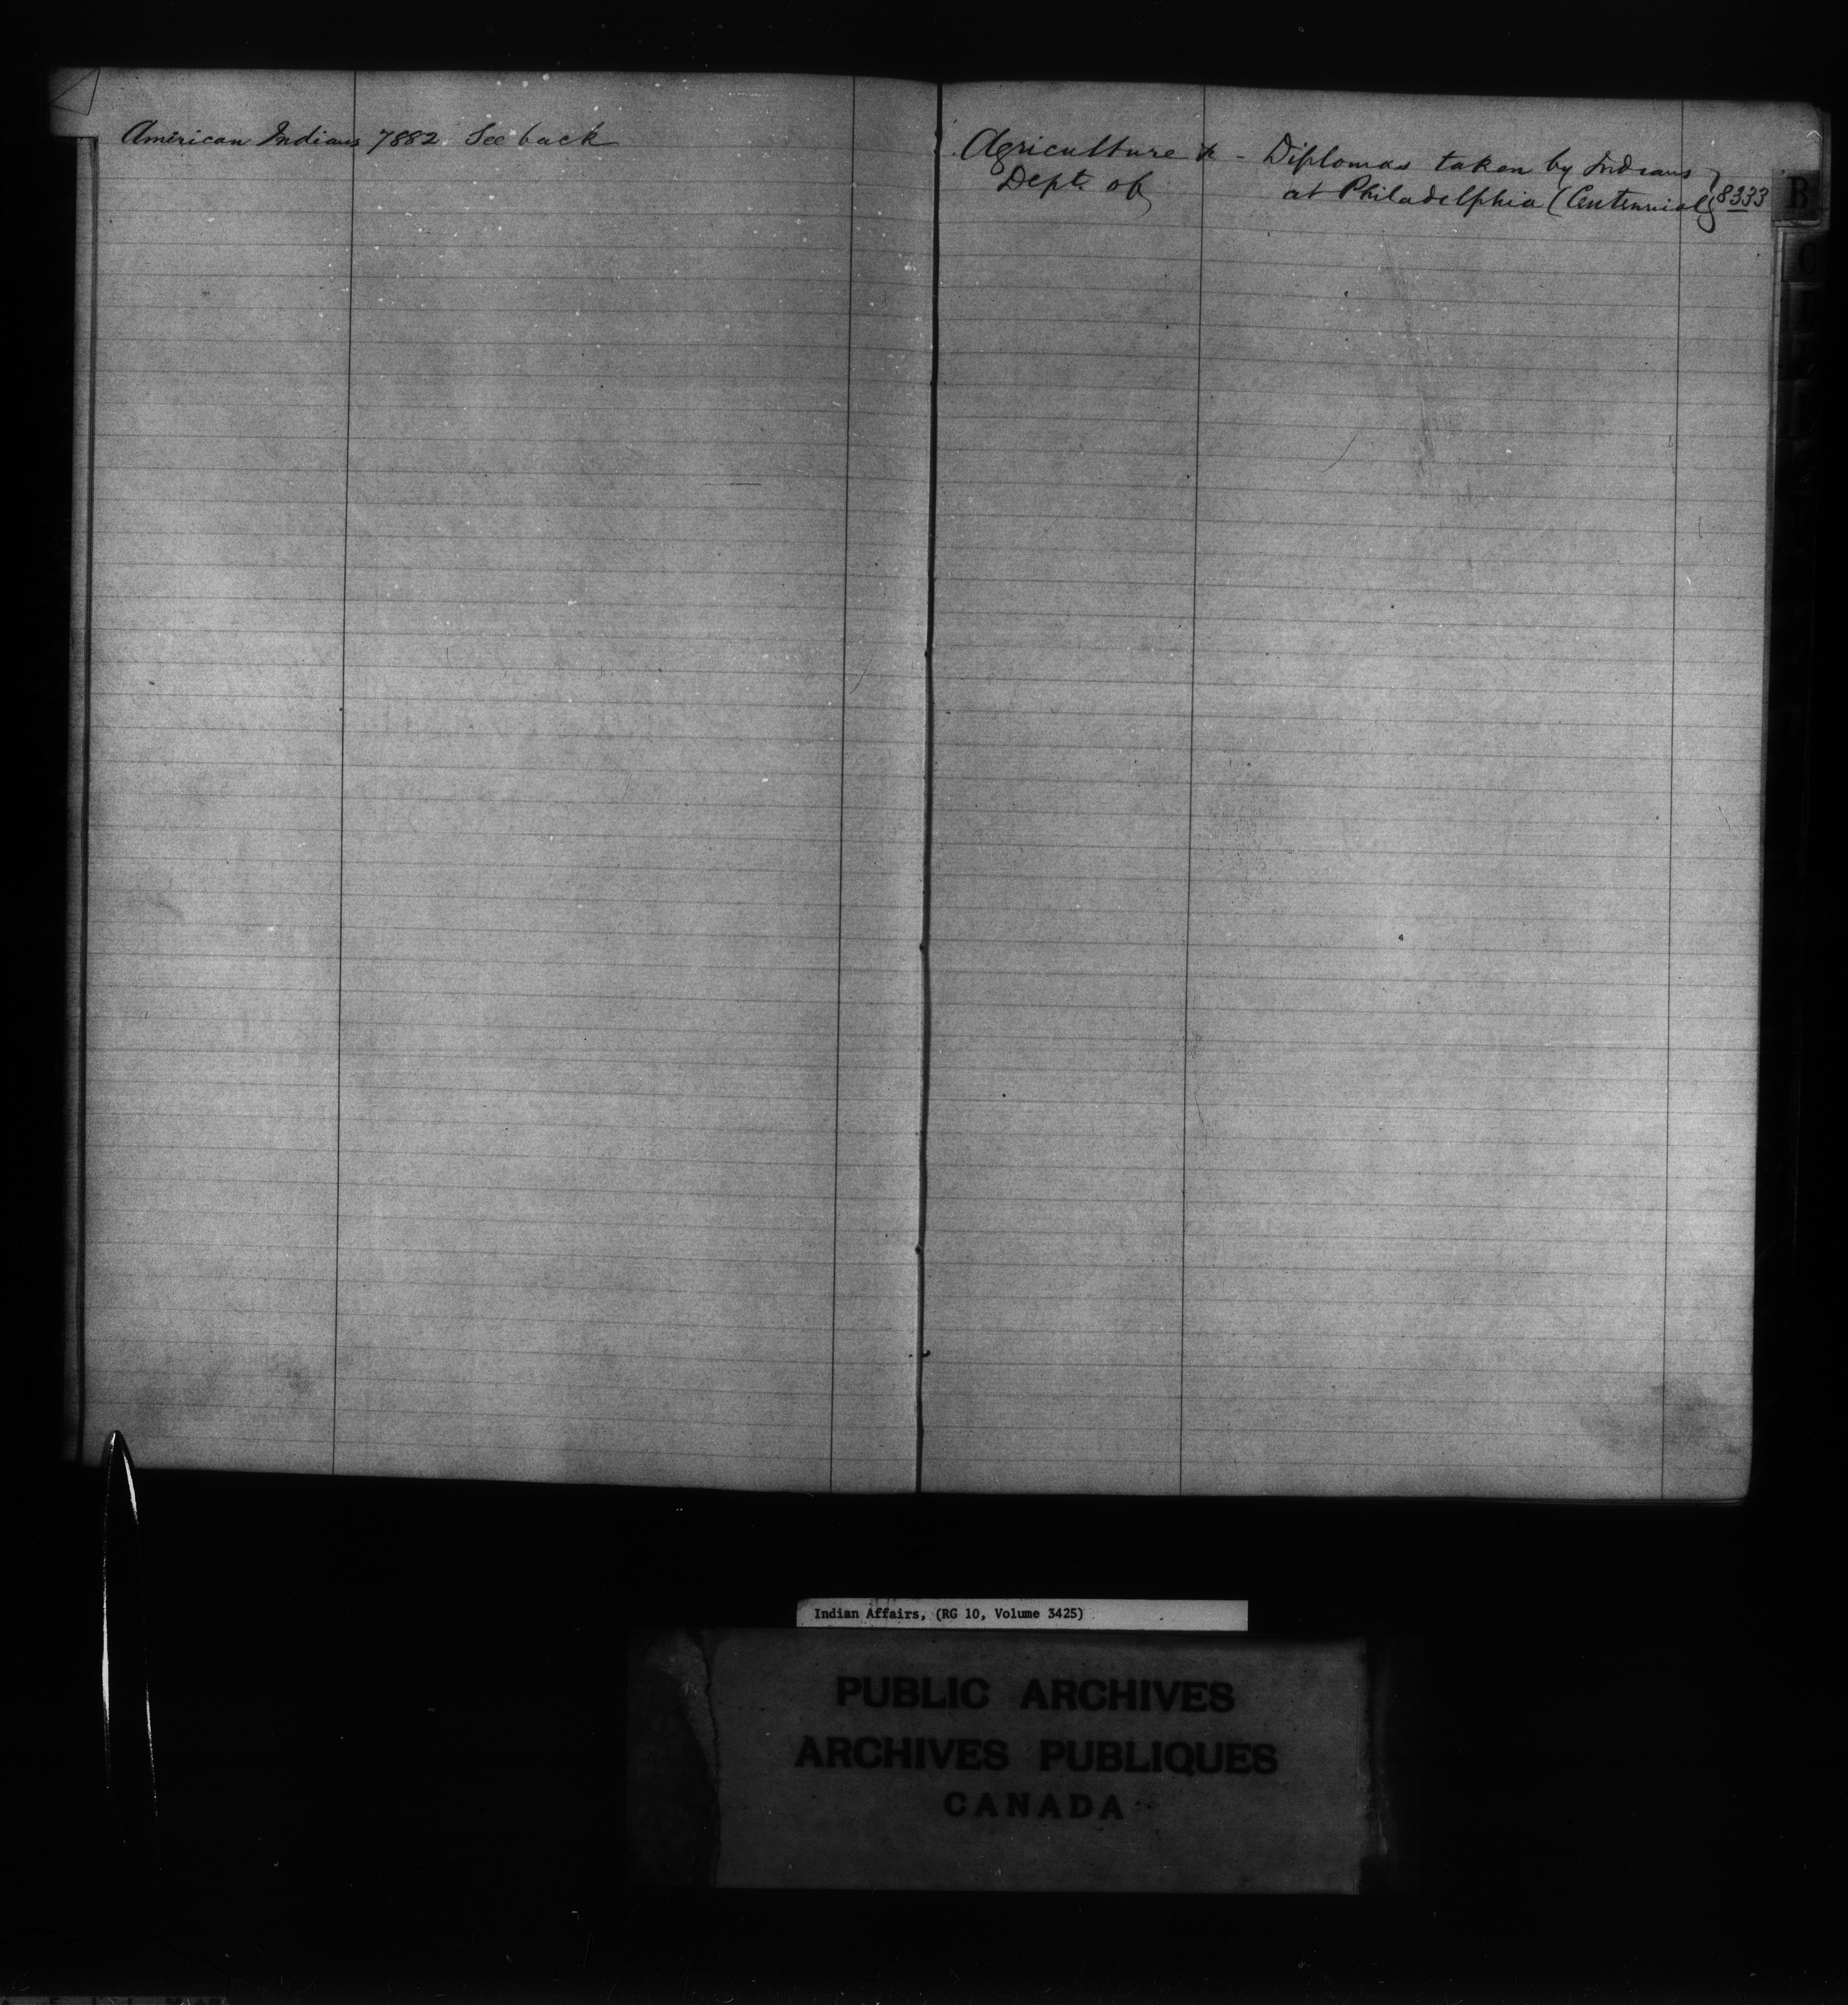 American Indians 7882 See back
Agriculture & - Diplomas taken by Indians
Dept. of at Philadelphia (Centennial) 8333
B
C
Indian Affairs, (RG 10, Volume 3425)
PUBLIC ARCHIVES
ARCHIVES PUBLIQUES
CANADA